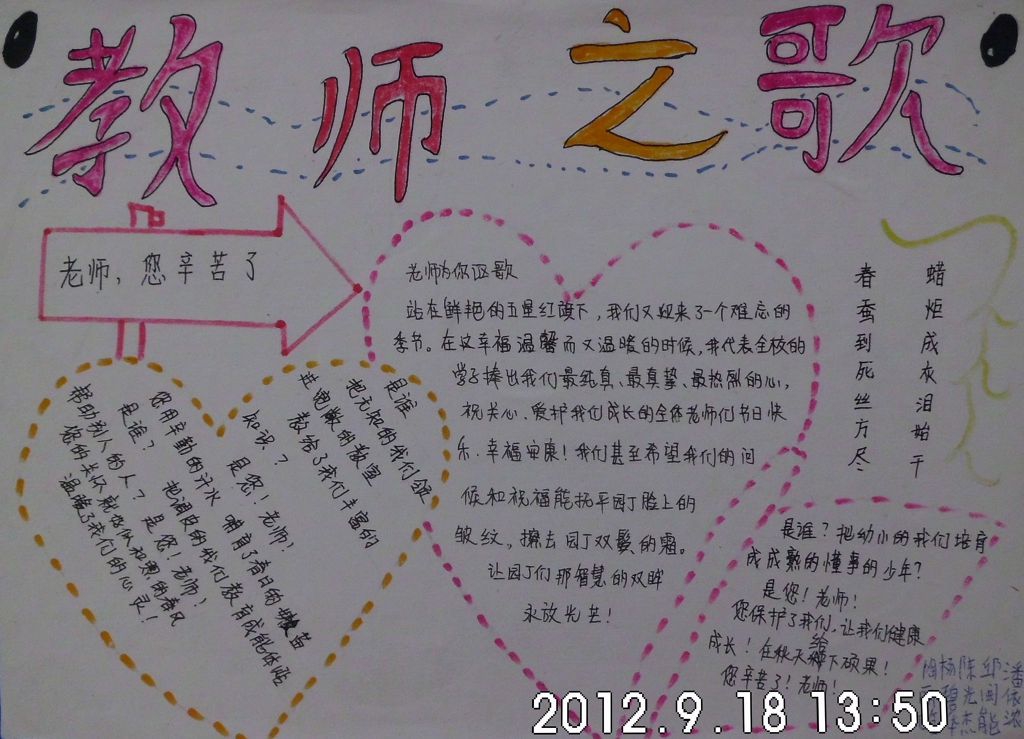 教师之歌
老师，您辛苦了
老师为你讴歌
站在鲜艳的五星红旗下，我们又迎来了一个难忘的
季节。在这幸福温馨而又温暖的时候，我代表全校的
学子捧出我们最纯真、最真挚、最热烈的心，
祝关心、爱护我们成长的全体老师们节日快
乐、幸福安康！我们甚至希望我们的问
候和祝福能抚平园丁脸上的
皱纹，擦去园丁双鬓的霜。
让园丁们那智慧的双眸
永放光芒！
春蚕到死丝方尽
蜡炬成灰泪始干
是谁
把无知的我们领
进宽敞的教室
教给了我们丰富的
知识？
是您！老师！
您用辛勤的汗水 哺育了春日的嫩苗
是谁？ 把调皮的我们教育成能体贴
帮助别人的人？ 是您！老师！
您的关怀就好似和煦的春风
温暖了我们的心灵！
是谁？把幼小的我们培育
成成熟的懂事的少年？
是您！老师！
您保护了我们，让我们健康
成长！在秋天给下硕果！
您辛苦了！老师！
2012.9.18 13:50